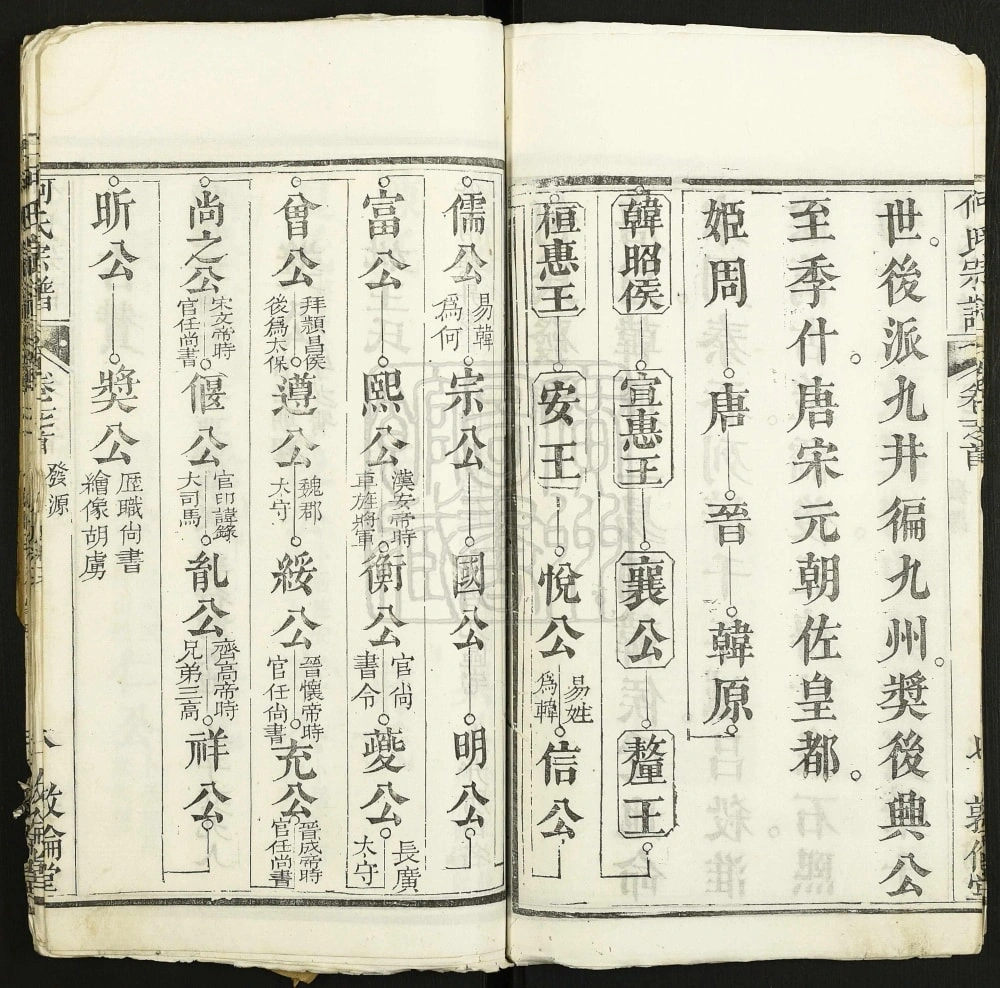 世後派九井徧九州奬後興公
至季什唐宋元朝佐皇都
姬周 唐 晉 韓原
韓昭侯 宣惠王 襄公 釐王
桓惠王 安王 悅公 易姓爲韓 信公
儒公 易韓爲何 宗公 國公 明公
富公 熙公 漢安帝時車旌將軍 衡公 官尚書令 夔公 長廣太守
曾公 拜頴昌侯後爲太保 遵公 魏郡太守 綏公 晉懷帝時官任尚書 充公 晉成帝時官任尚書
尚之公 宋文帝時官任尚書 偃公 官印諱錄大司馬 胤公 齊高帝時兄弟三高 祥公
昕公 奬公 歷職尚書繪像胡虜
發源
何氏宗譜 卷之首 敦倫堂